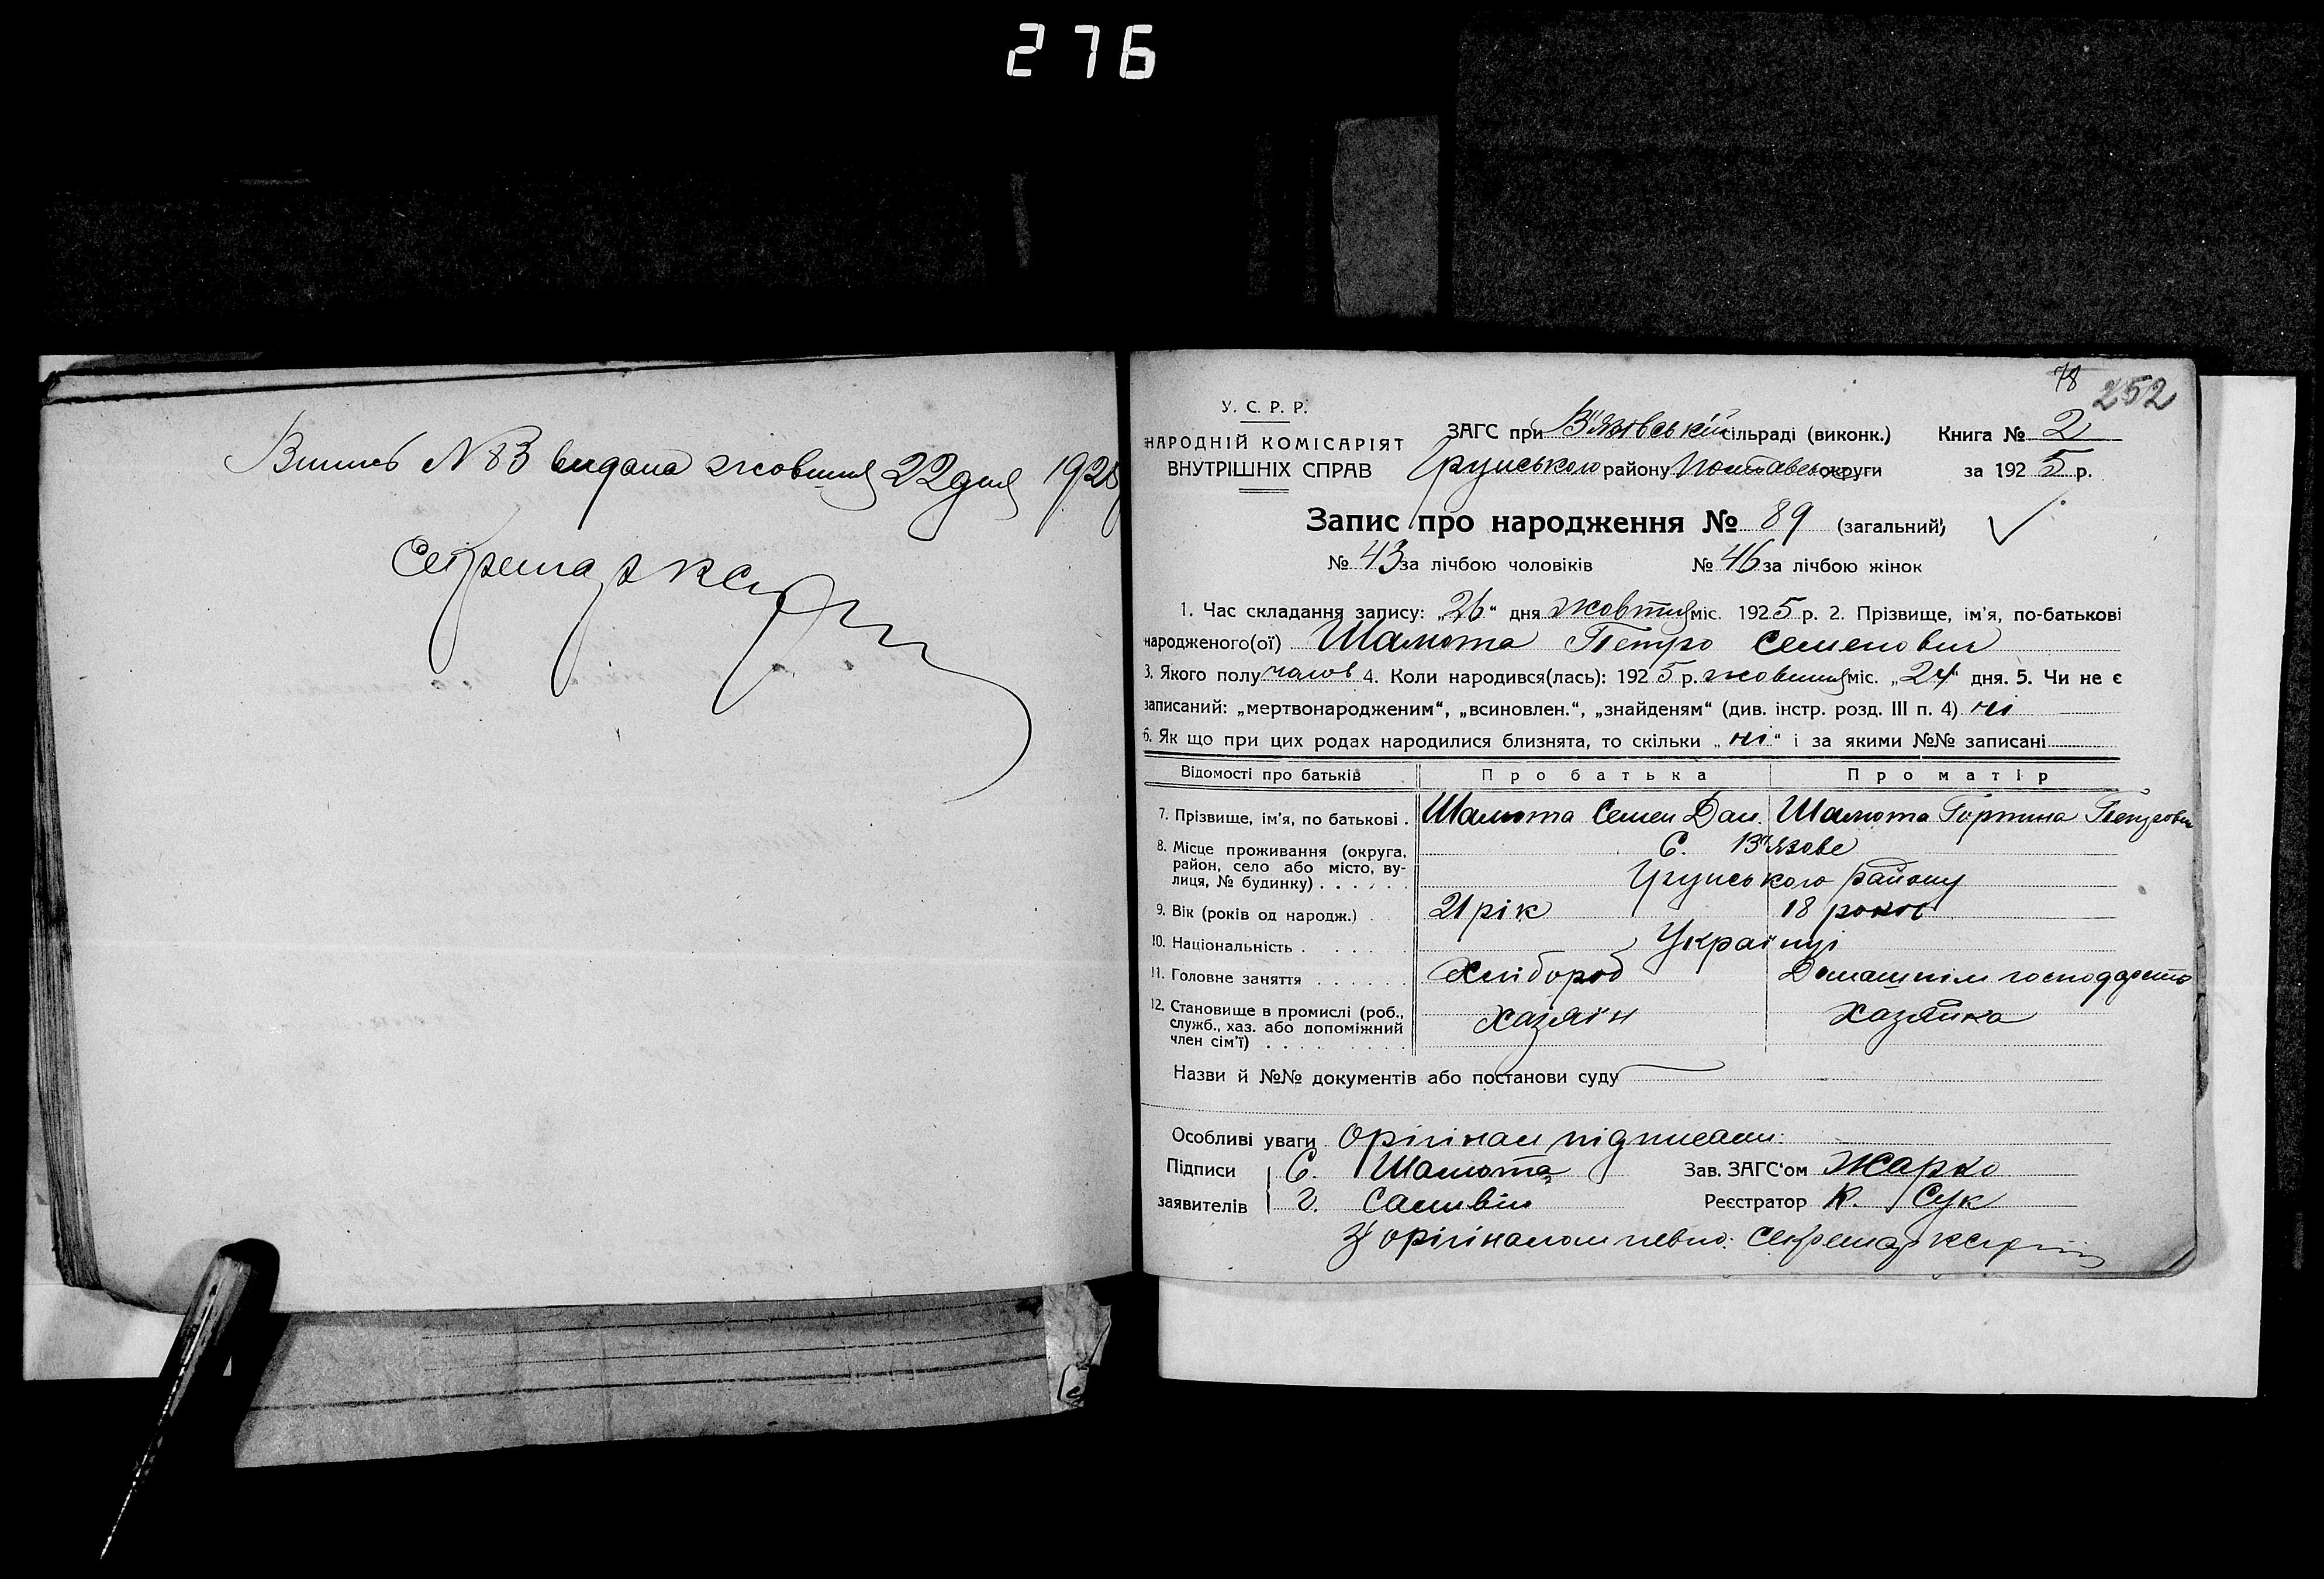 276
Випись № 83 видана жовтня 22 дня
Секретар
78
252
У. С. Р. Р.
НАРОДНІЙ КОМІСАРІЯТ
ВНУТРІШНІХ СПРАВ
ЗАГС при В'язовській сільраді (виконк.) Книга № 2
Грунського району Полтавської округи за 1925 р.
Запис про народження № 89 (загальний)
№ 43 за лічбою чоловіків № 46 за лічбою жінок
1. Час складання запису: „26“ дня жовтня міс. 1925 р. 2. Прізвище, ім'я, по-батькові
народженого(ої) Шамота Петро Семенович
3. Якого полу чолов 4. Коли народився(лась): 1925 р. жовтня міс. „24“ дня. 5. Чи не є
записаний: „мертвонародженим“, „всиновлен.“, „знайденям“ (див. інстр. розд. III п. 4) ні
6. Як що при цих родах народилися близнята, то скільки „ні“ і за якими №№ записані
Відомості про батьків Про батька Про матір
7. Прізвище, ім'я, по батькові . Шамота Семен Дан. Шамота
8. Місце проживання (округа, район, село або місто, вулиця, № будинку) С. В'язове
Грунського району
9. Вік (років од народж.) 21 рік 18 років
10. Національність Українці
11. Головне заняття Хлібороб Домашнім господарств
12. Становище в промислі (роб., служб., хаз. або допоміжний член сім'ї) Хазяїн Хазяйка
Назви й №№ документів або постанови суду
Особливі уваги Орігінал підписали:
Підписи С. Шамота Зав. ЗАГС'ом Жарко
заявителів Реєстратор К. Сук
З орігіналом певно: Секретар